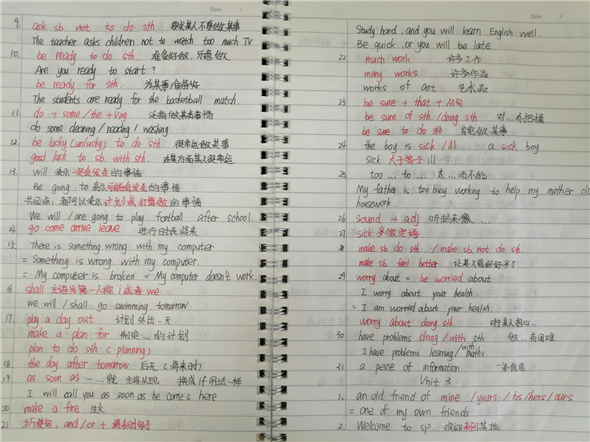 9. ask sb. not to do sth. 要求某人不要做某事
The teacher asks children not to watch too much TV
10. be ready to do sth. 准备好做,乐意做
Are you ready to start?
be ready for sth. 为某事准备好
The students are ready for the basketball match.
11. do + some/the + Ving
do some cleaning / reading / washing
12. be lucky (unlucky) to do sth. 很幸运做某事
good luck to sb. with sth.
13. will 表示一定会发生的事情
Be going to 表示可能会发生的事情
共同点: 都可以表示计划或打算做的事情
We will / are going to play football after school.
14. go come arrive leave 进行时表将来
15. There is something wrong with my computer
= Something is wrong with my computer.
= My computer is broken = My computer doesn't work.
16. shall 主语为第一人称 I 或者 we
we will / shall go swimming tomorrow
17. play a day out 计划外出一天
make a plan for 制定…的计划
plan to do sth (planning)
18. the day after tomorrow 后天 (将来时)
19. as soon as 一…就 主将从现 换成 if 用法一样
I will call you as soon as he comes here
20. make a fire 生火
21. 祈使句, and/or + 将来时句子
Study hard, and you will learn English well.
Be quick, or you will be late.
22. much work 许多工作
many works 许多作品
works of art 艺术品
23. be sure + that + 从句
be sure of sth / doing sth 对…有把握
be sure to do sth 肯定做某事
24. the boy is sick / ill a sick boy
sick 大于等于 ill
25. too … to … 太…而不能
My father is too busy working to help my mother do
housework.
26. sound + adj 听起来像…
27. sick 多做定语
28. make sb do sth. / make sb not do sth.
make sb feel better 让某人感到好多了
29. worry about = be worried about
I worry about your health.
= I am worried about your health.
worry about doing sth 对某人担心…
30. have problems doing / with sth 做…有困难
I have problems learning / with maths.
31. a piece of information 一条信息
Unit 3
1. an old friend of mine / yours / his / hers / ours
= one of my own friends
2. Welcome to sp. 欢迎来到某地